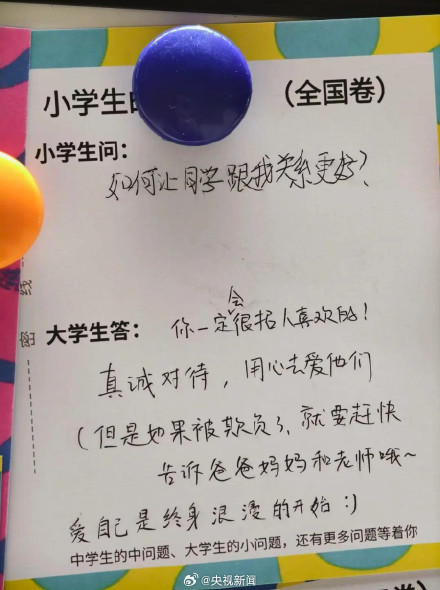 小学生的 （全国卷）
小学生问：
如何让同学跟我关系更好？
大学生答： 你一定会很招人喜欢的！
真诚对待，用心去爱他们
（但是如果被欺负了、就要赶快
告诉爸爸妈妈和老师哦~
爱自己是终身浪漫的开始 :)
中学生的中问题、大学生的小问题，还有更多问题等着你
线
密
@央视新闻